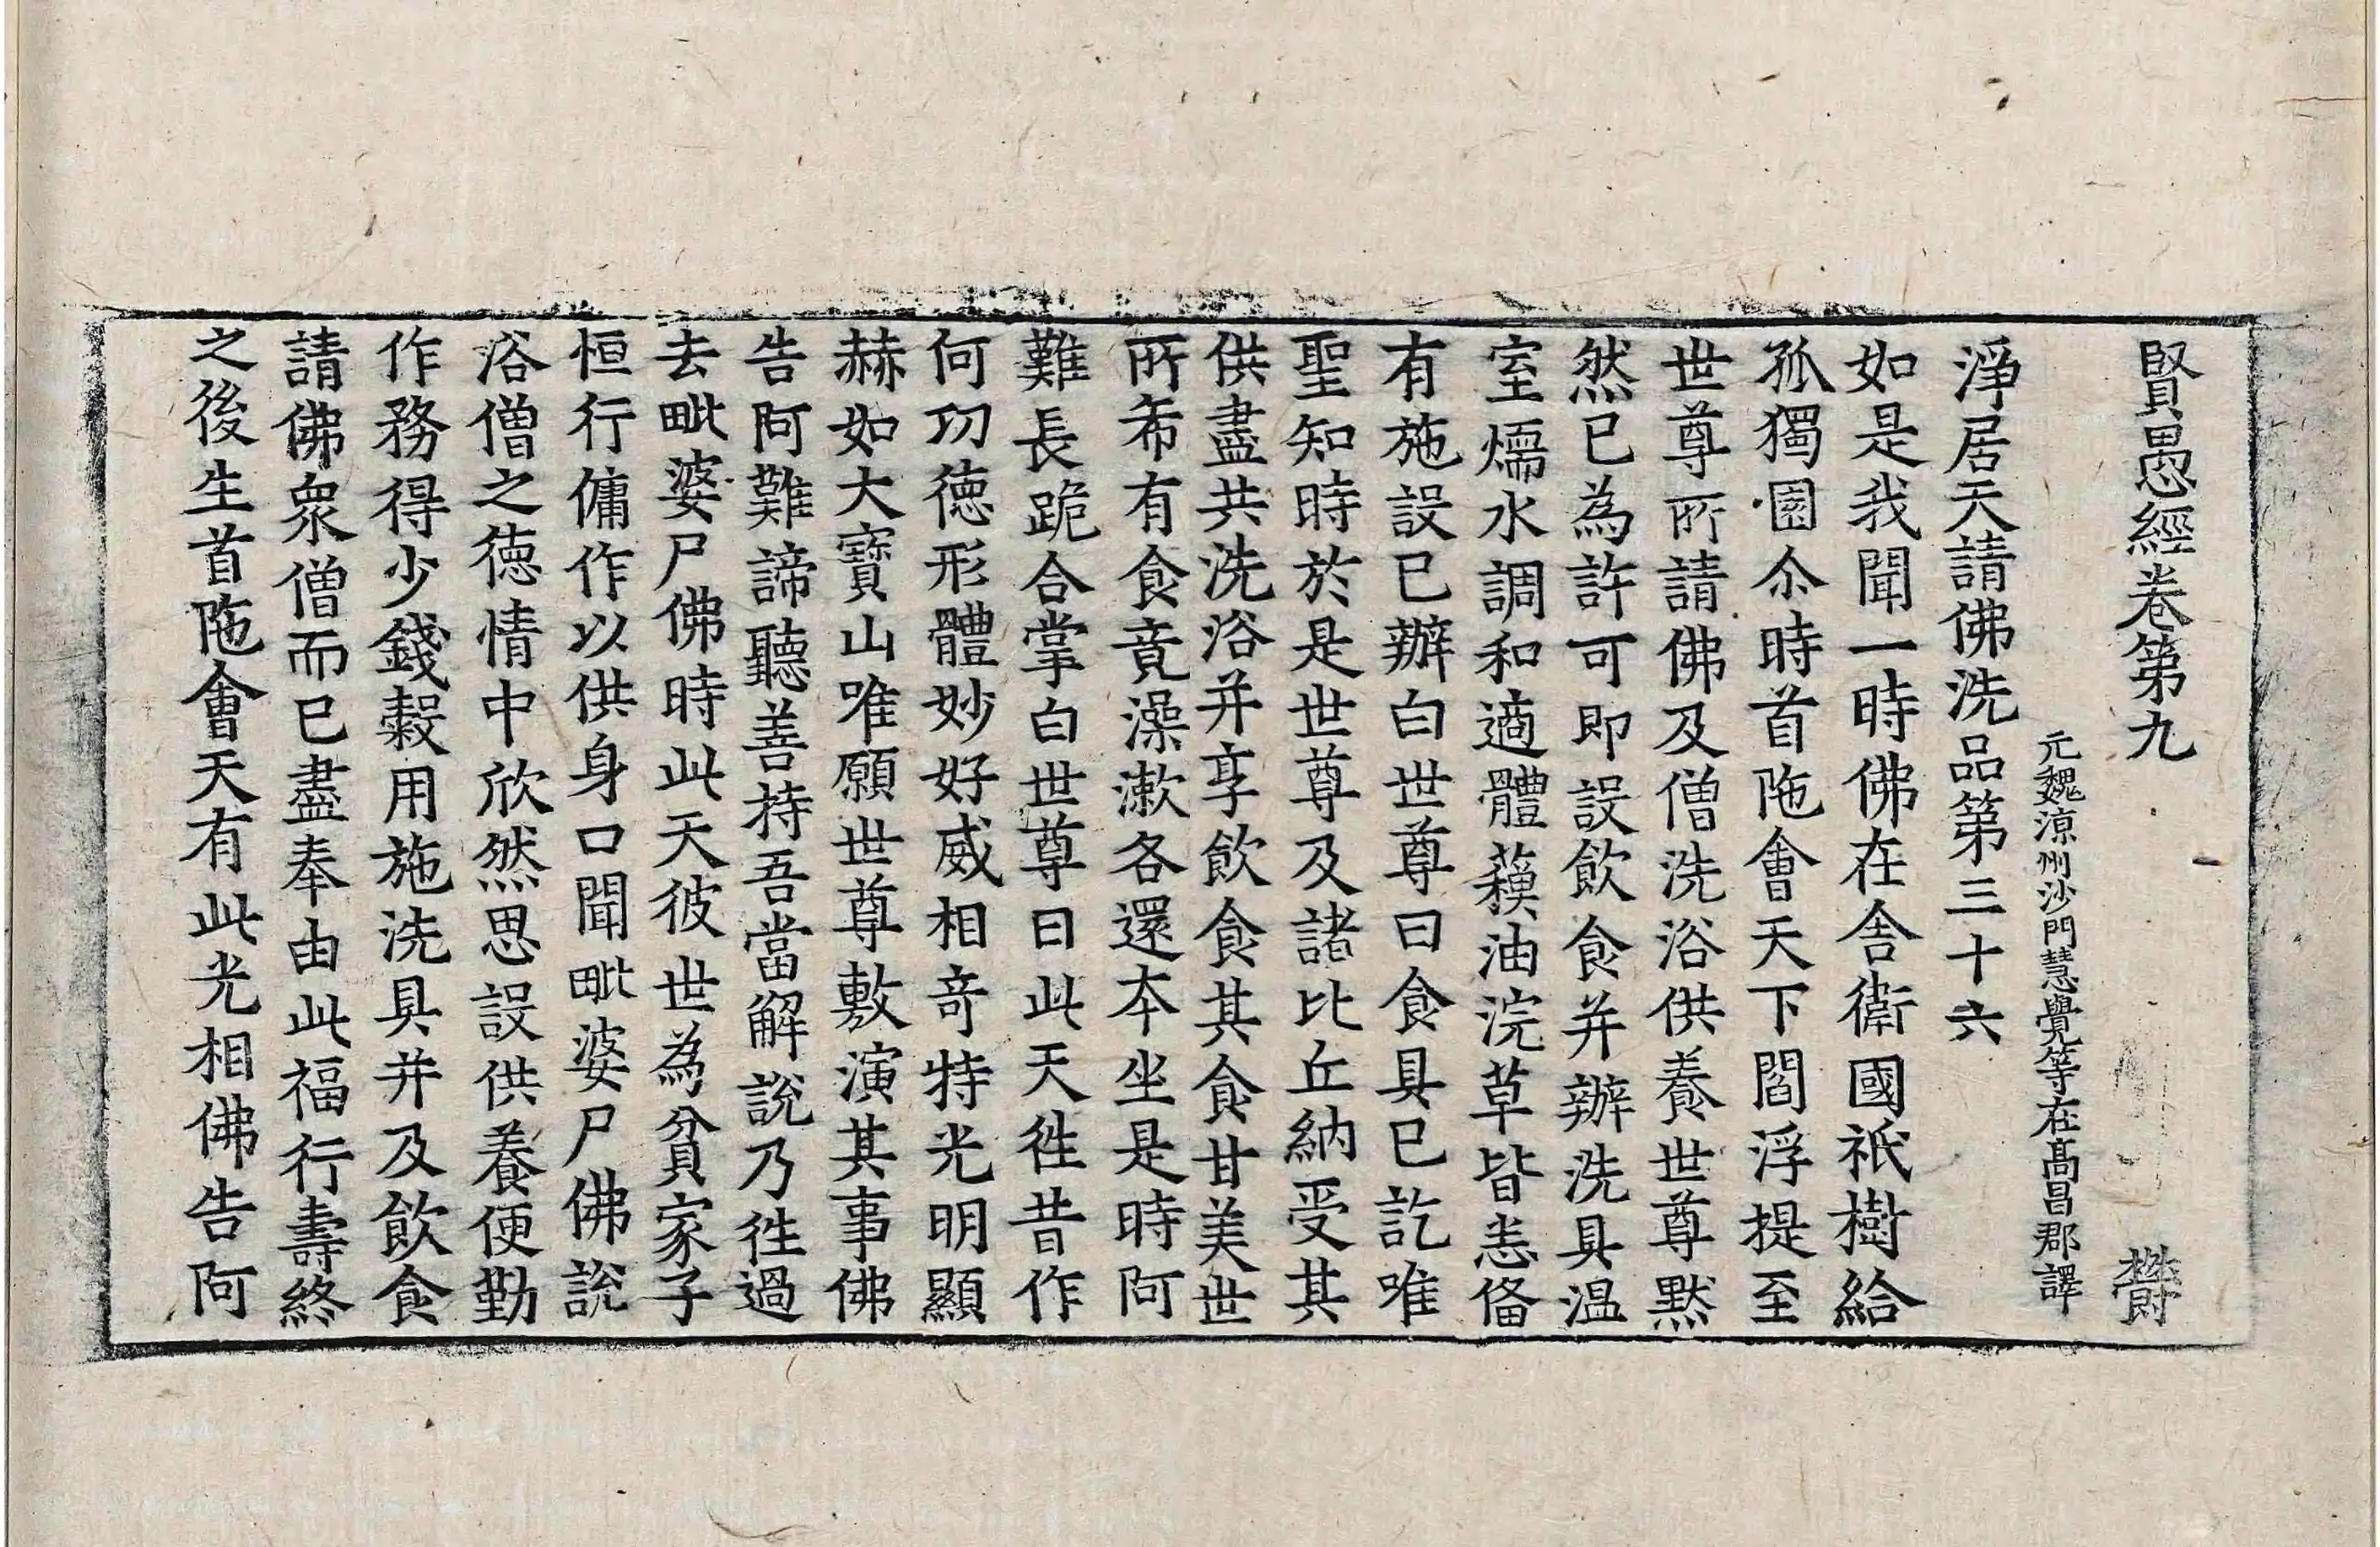 賢愚經卷第九 欝
元魏涼州沙門慧覺等在髙昌郡譯
淨居天請佛洗品第三十六
如是我聞一時佛在舍衛國祇樹給
孤獨園尒時首陁會天下閻浮提至
世尊所請佛及僧洗浴供養世尊默
然已為許可即設飲食并辦洗具温
室煗水調和適體蘓油浣草皆悉俻
有施設已辦白世尊曰食具已訖唯
聖知時於是世尊及諸比丘納受其
供盡共洗浴并享飲食其食甘美世
所希有食竟澡漱各還夲坐是時阿
難長跪合掌白世尊曰此天徃昔作
何㓛德形體妙好威相竒特光明顯
赫如大寶山唯願世尊敷演其事佛
告阿難諦聽善持吾當解說乃徃過
去毗婆尸佛時此天彼世為貧家子
恒行傭作以供身口聞毗婆尸佛說
浴僧之德情中欣然思設供養便勤
作務得少錢穀用施洗具并及飲食
請佛衆僧而已盡奉由此福行壽終
之後生首陁會天有此光相佛告阿